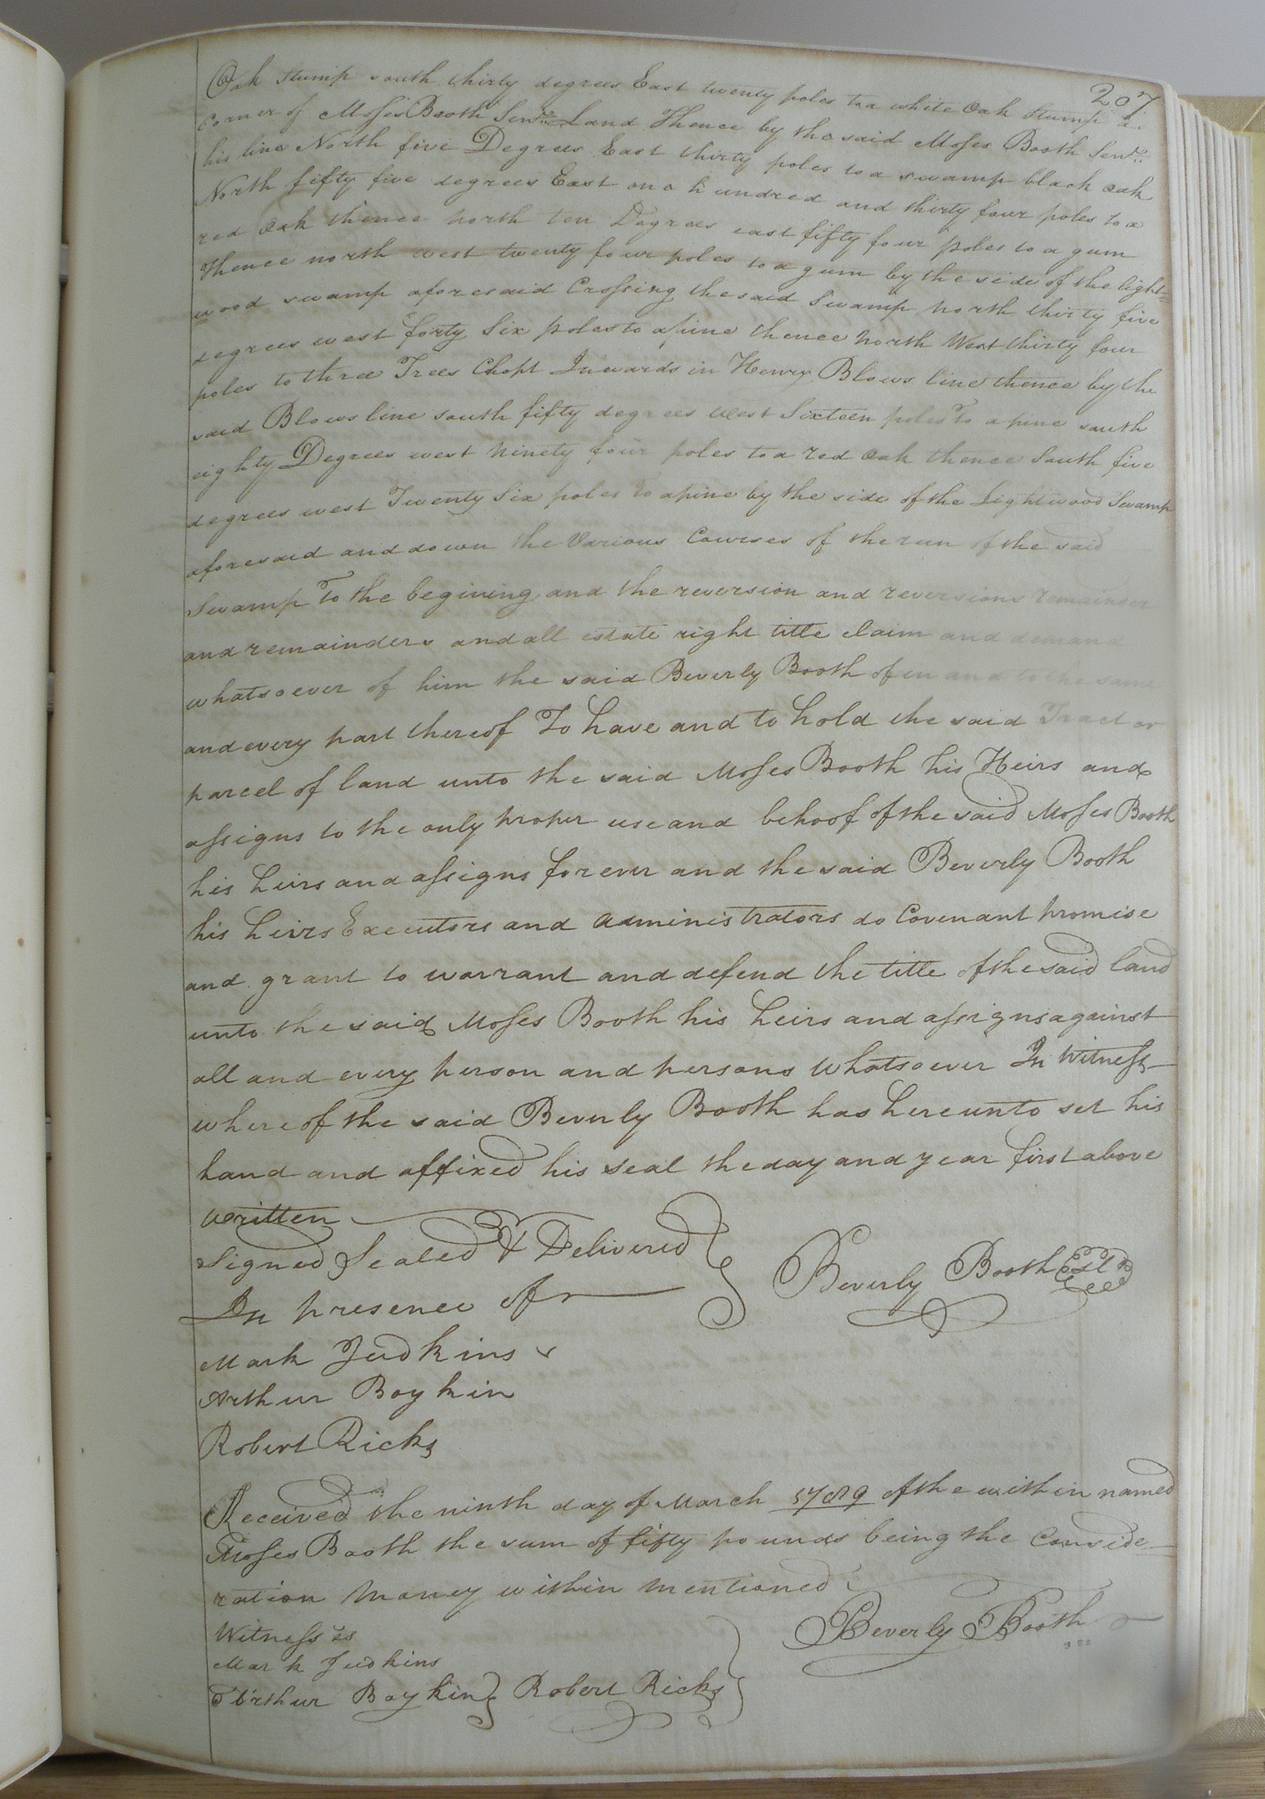 207
Oak Stump south thirty degrees East twenty poles to a white Oak Stump a
Corner of Moses Booth Senr. Land Thence by the said Moses Booth Senr.
his line North five Degrees East thirty poles to a swamp black oak
North fifty five degrees East one hundred and thirty four poles to a
red Oak thence north ten Degrees east fifty four poles to a gum
Thence north west twenty four poles to a gum by the side of the light=
wood swamp aforesaid Crossing the said Swamp north thirty five
degrees west forty Six poles to a pine thence North West thirty four
poles to three Trees Chopt Inwards in Henry Blows line thence by the
said Blows line south fifty degrees west Sixteen poles to a pine south
eighty Degrees west Ninety four poles to a red Oak thence South five
degrees west Twenty Six poles to a pine by the side of the Lightwood Swamp
aforesaid and down the Various Courses of the run of the said
Swamp To the begining and the reversion and reversions remainder
and remainders and all estate right title claim and demand
whatsoever of him the said Beverly Booth of in and to the same
and every part thereof To have and to hold the said Tract or
parcel of land unto the said Moses Booth his Heirs and
assigns to the only proper use and behoof of the said Moses Booth
his heirs and assigns forever and the said Beverly Booth
his heirs Executors and administrators do Covenant promise
and grant to warrant and defend the title of the said land
unto the said Moses Booth his heirs and assigns against
all and every person and persons whatsoever In Witness
whereof the said Beverly Booth has hereunto set his
hand and affixed his seal the day and year first above
written
Signed Sealed & Delivered
In presence of Beverly Booth
Mark Judkins
Arthur Boykin
Robert Ricks
Received the ninth day of March 1789 of the within named
Moses Booth the sum of fifty pounds being the Conside=
ration Money within mentioned
Witnesses Beverly Booth
Mark Judkins
Arthur Boykin Robert Ricks